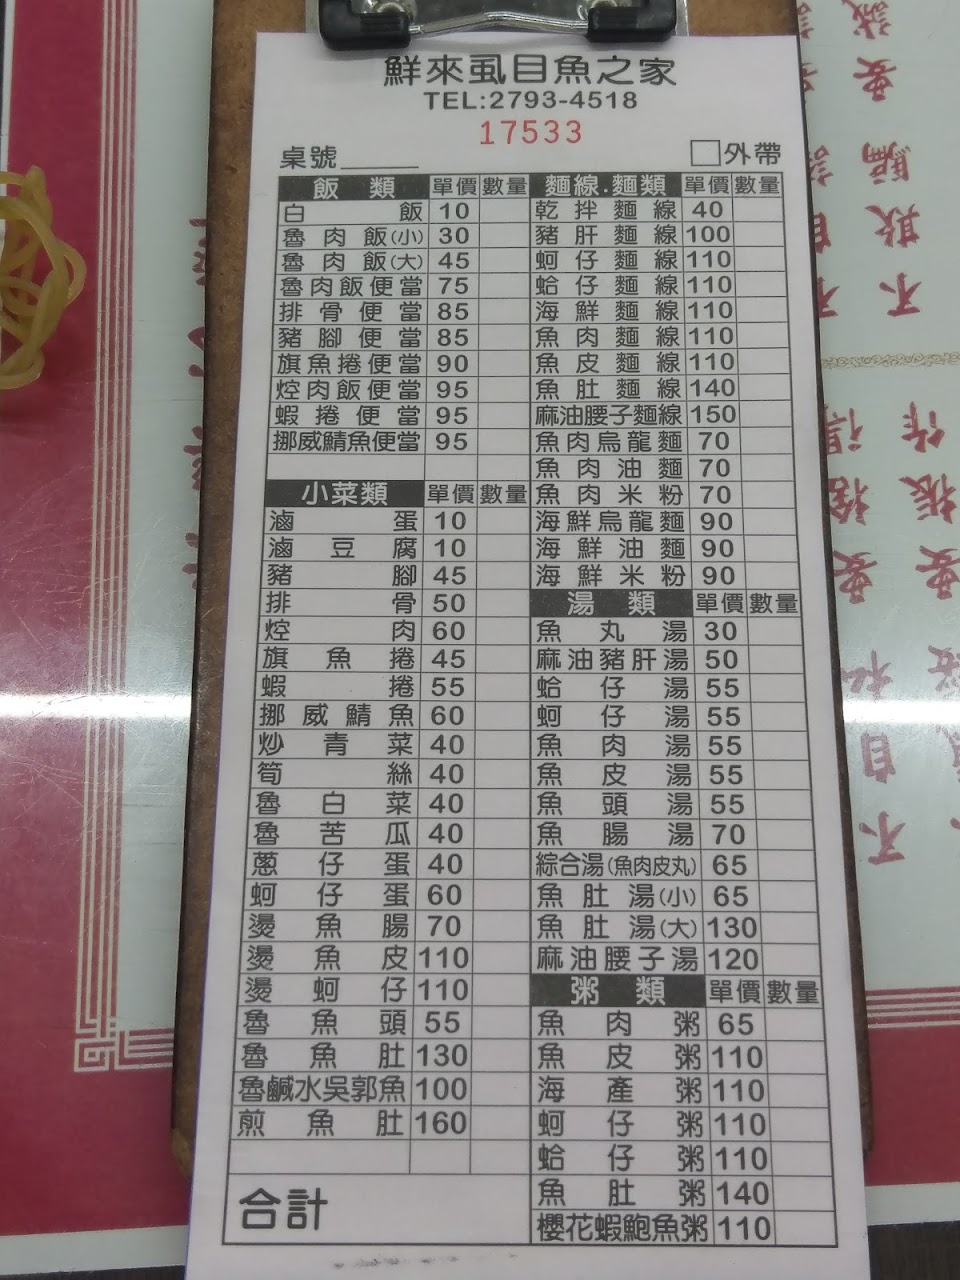 鮮來虱目魚之家
TEL:2793-4518
17533
桌號______ □外帶
飯類 單價 數量
白飯 10
魯肉飯(小) 30
魯肉飯(大) 45
魯肉飯便當 75
排骨便當 85
豬腳便當 85
旗魚捲便當 90
焢肉飯便當 95
蝦捲便當 95
挪威鯖魚便當 95
小菜類 單價 數量
滷蛋 10
滷豆腐 10
豬腳 45
排骨 50
焢肉 60
旗魚捲 45
蝦捲 55
挪威鯖魚 60
炒青菜 40
筍絲 40
魯白菜 40
魯苦瓜 40
蔥仔蛋 40
蚵仔蛋 60
燙魚腸 70
燙魚皮 110
燙蚵仔 110
魯魚頭 55
魯魚肚 130
魯鹹水吳郭魚 100
煎魚肚 160
合計
麵線.麵類 單價 數量
乾拌麵線 40
豬肝麵線 100
蚵仔麵線 110
蛤仔麵線 110
海鮮麵線 110
魚肉麵線 110
魚皮麵線 110
魚肚麵線 140
麻油腰子麵線 150
魚肉烏龍麵 70
魚肉油麵 70
魚肉米粉 70
海鮮烏龍麵 90
海鮮油麵 90
海鮮米粉 90
湯類 單價 數量
魚丸湯 30
麻油豬肝湯 50
蛤仔湯 55
蚵仔湯 55
魚肉湯 55
魚皮湯 55
魚頭湯 55
魚腸湯 70
綜合湯(魚肉皮丸) 65
魚肚湯(小) 65
魚肚湯(大) 130
麻油腰子湯 120
粥類 單價 數量
魚肉粥 65
魚皮粥 110
海產粥 110
蚵仔粥 110
蛤仔粥 110
魚肚粥 140
櫻花蝦鮑魚粥 110